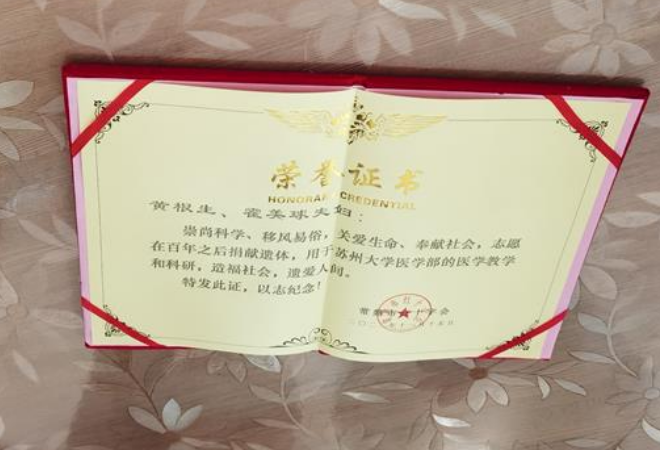 荣誉证书
HONORARY CREDENTIAL
黄根生、霍美球夫妇：
崇尚科学、移风易俗，关爱生命、奉献社会，志愿
在百年之后捐献遗体，用于苏州大学医学部的医学教学
和科研，造福社会，遗爱人间。
特发此证，以志纪念！